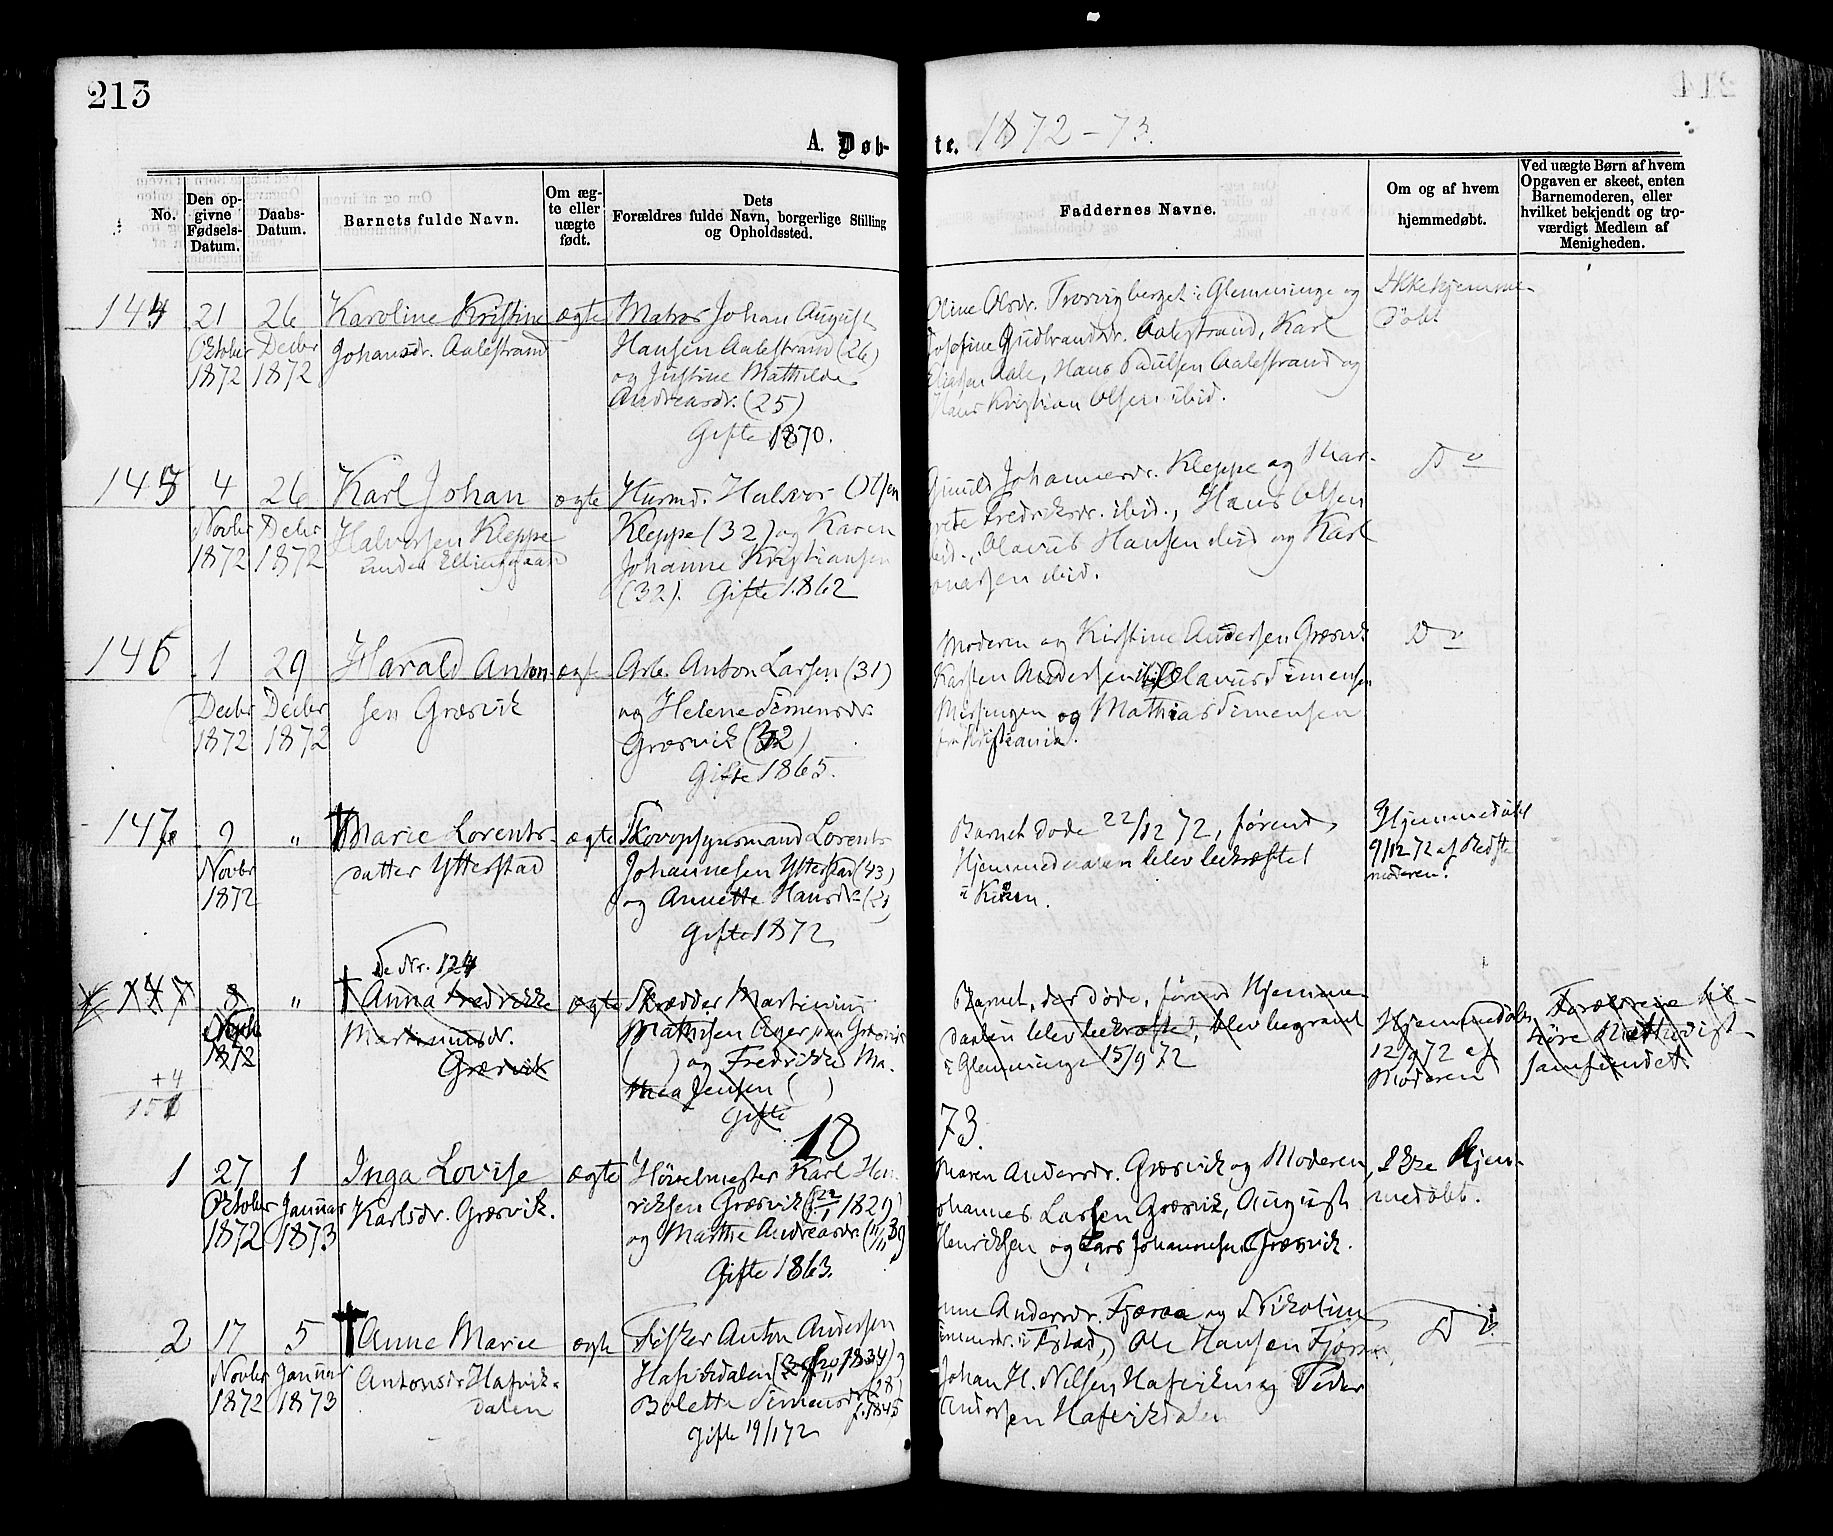 213
A. Døbte. 1872-73.
No.
Den opgivne Fødsels-Datum.
Daabs-Datum.
Barnets fulde Navn.
Om ægte eller uægte født.
Dets Forældres fulde Navn, borgerlige Stilling og Opholdssted.
Faddernes Navne.
Om og af hvem hjemmedøbt.
Ved uægte Børn af hvem Opgaven er skeet, enten Barnemoderen, eller hvilket bekjendt og troværdigt Medlem af Menigheden.
144
21 Oktober 1872
26 Decbr 1872
Karoline Kristine
Johansdr. Aalestrand
ægte
Matros Johan August
Hansen Aalestrand (26)
og Justine Mathilde
Andreasdr. (25)
Gifte 1870.
Oline Olsdr. Trosvigberget i Glemminge og
Josefine Gudbrandsdr. Aalestrand, Karl
Eliassen Aale, Hans Paulsen Aalestrand og
Hans Kristian Olsen ibid.
Ikke hjemme-
døbt
145
4 Novbr 1872
26 Decbr 1872
Karl Johan
Halvorsen Kleppe
under Ellingaard
ægte
Husmd. Halvor Olsen
Kleppe (32) og Karen
Johanne Kristiansen
(32). Gifte 1862
Gunild Johannesdr. Kleppe og Mar-
grete Fredriksdr. ibid., Hans Olsen
ibid., Olavus Hansen ibid og Karl
Jonassen ibid.
Do
146
1 Decbr 1872
29 Decbr 1872
Harald Anton-
sen Græsvik
ægte
Arb. Anton Larsen (31)
og Helene Simensdr.
Græsvik (32)
Gifte 1865.
Moderen og Kirstine Andersen Græsvik
Karsten Andersen ibid Olavus Simensen
og Mathias Simensen
fra Kristiania.
Do
147
9 Novbr 1872
"
† Marie Lorents-
datter Ytterstad
ægte
Skovopsynsmand Lorents
Johannesen Ytterstad (43)
og Annette Hansdr. (21
Gifte 1872
Barnet døde 22/12 72, førend
Hjemmedaaben blev bekræftet
i Kirken.
Hjemmedøbt
9/12 72 af Bedste
moderen.
Se Nr. 124
147
8
1872
"
† Anna Fredrikke
Martinusdr.
Græsvik
ægte
Skrædder Martinius
Mathisen Ager paa Græsvik
( ) og Fredrikke Ma-
thea Jensen ( )
Gifte
Barnet, der døde, førend Hjemme-
daaben blev bekræftet, blev begravet
i Glemminge 15/9 72
Hjemmedøbt
12/9 72 af
Moderen
Forældrene til-
høre Methodist-
samfundet.
+4
151
1873.
1
27 Oktober 1872
1 Januar 1873
Inga Lovise
Karlsdr. Græsvik.
ægte
Høvelmester Karl Hen-
riksen Græsvik (22/1 1829)
og Marthe Andreasdr. (11/11 39)
Gifte 1863.
Maren Andersdr. Græsvik og Moderen,
Johannes Larsen Græsvik, August
Henriksen og Lars Johannesen Græsvik.
Ikke hjem-
medøbt.
2
17 Novbr 1872
5 Januar 1873
† Anne Marie
Antonsdr Hafvik-
dalen
ægte
Fisker Anton Andersen
Hafvikdalen (20/11 1834) og
Bolette Simensdr (28)
f. 1845
Gifte 19/1 72
Anne Andersdr. Fjæraa og Nikoline
Simensdr. i Ystad, Ole Hansen Fjæraa,
Johan H. Nilsen Hafviken og Peder
Andersen Hafvikdalen
Do